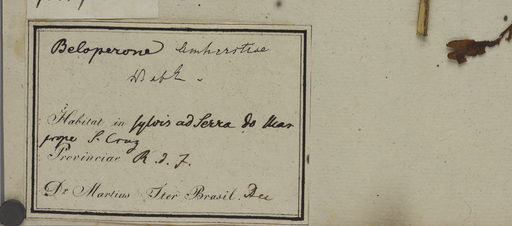 Beloperone Amherstiae
Habitat in sylvis ad Serra do Mar
prope S. Cruz
Provinciae R. d. J.
Dr Martius Iter Brasil. Dec